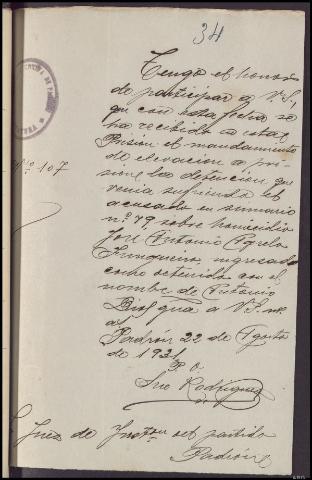 34
Tengo el honor
de participar a V.S,
que con esta fecha se
ha recibido en esta
Prision el mandamiento
de elevacion a pri-
sion la detencion que
venia sufriendo el
acusado en sumario
nº 79, sobre homicidio
José Antonio Agrelo
Junqueiro, ingresado
como detenido con el
nombre de Antonio
Dios gua a V.S. m
as
Padrón 22 de Agosto
de 1921
P.O.
Rodriguez
nº 107
Juez de Inston del partido
Padrón